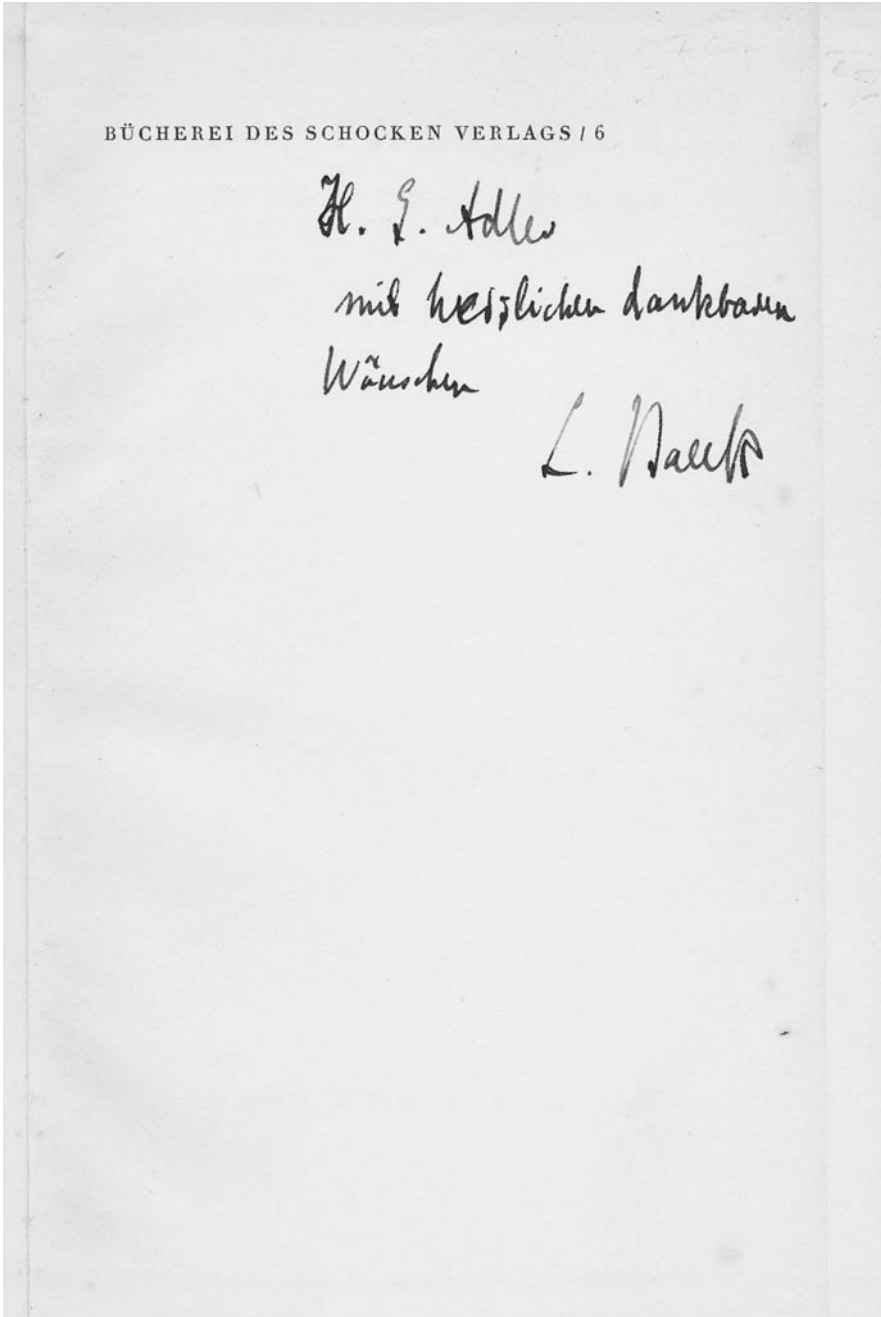 BÜCHEREI DES SCHOCKEN VERLAGS / 6
H. G. Adler
mit herzlichen dankbaren
Wünschen
L. Baeck